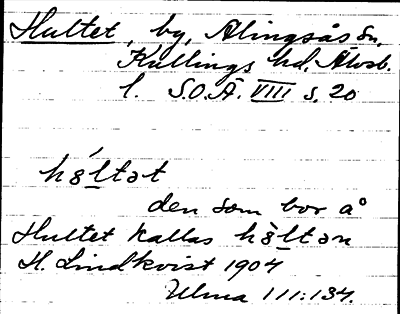 Hultet, by, Alingsås sn,
Kullings hd, Älvsb.
l. S.O.Ä. VIII s. 20
hó̱ltət
den som bor å
Hultet kallas hò̱ltən
H. Lindkvist 1904
Ulma 111:134.